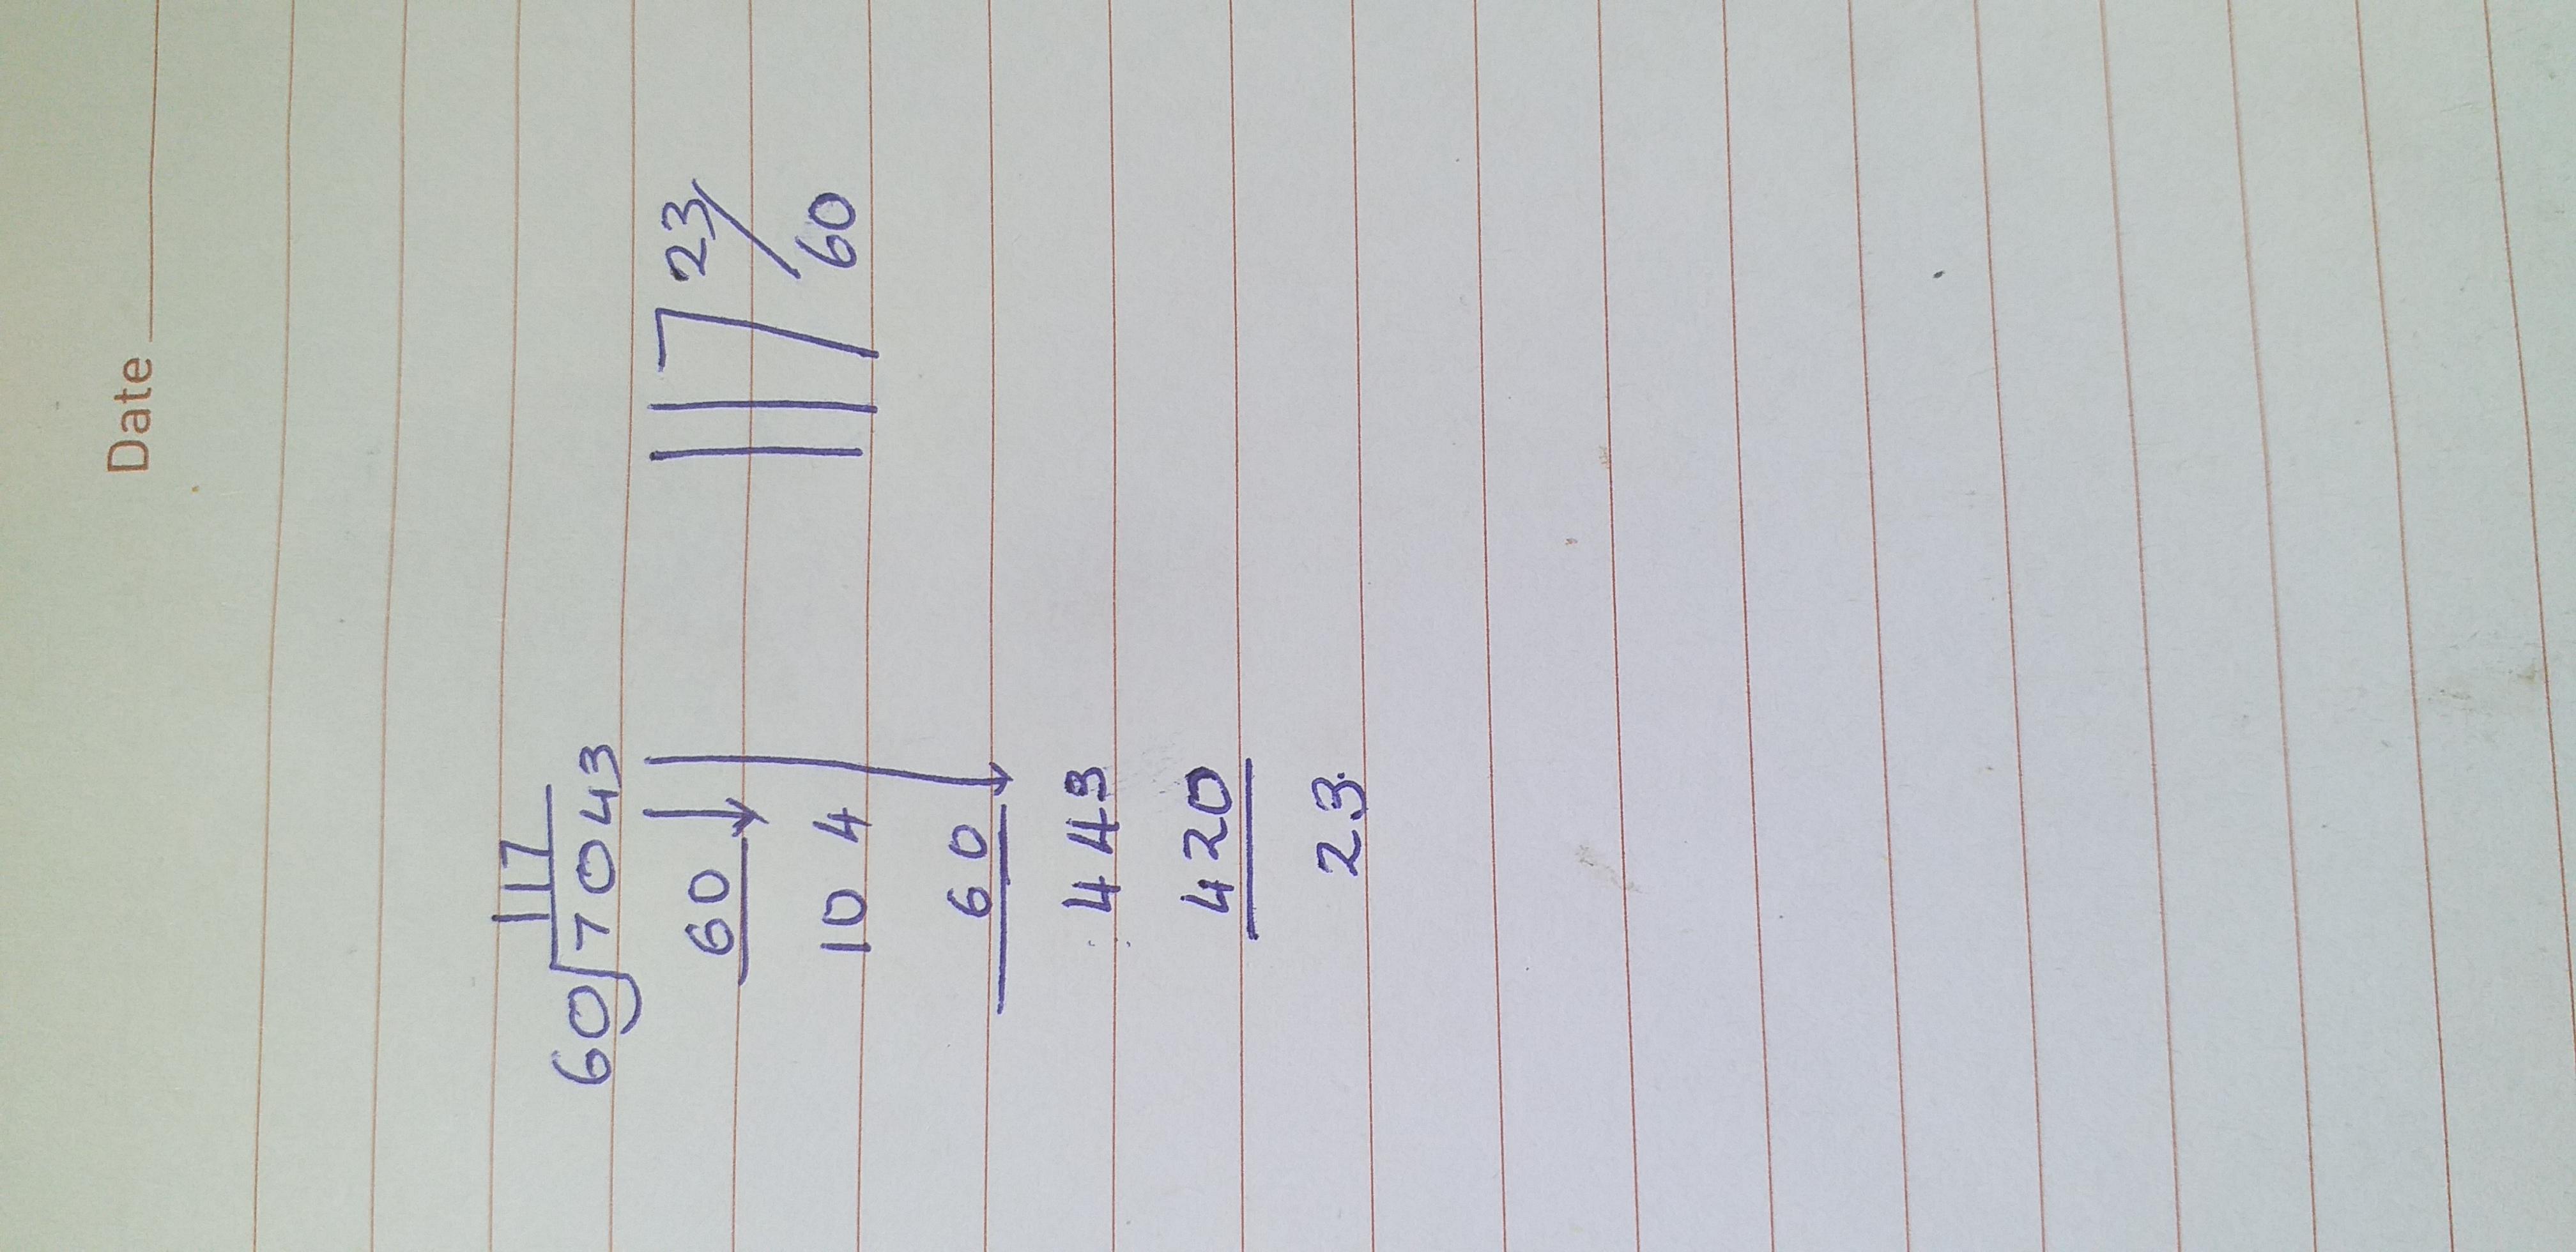 Date
117
60)7043
60
104
60
443
420
23
117 23/60